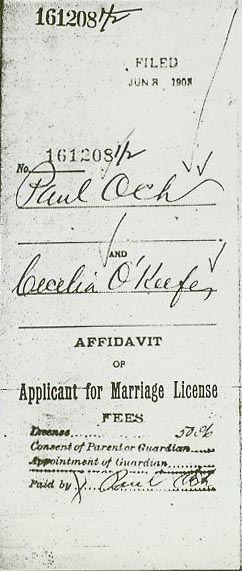 161208½
FILED
JUN 3 190
No. 161208½
Paul Och
AND
Cecelia O'Keefe,
AFFIDAVIT
OF
Applicant for Marriage License
FEES
License 50.%
Consent of Parent or Guardian
Appointment of Guardian
Paid by Paul Och